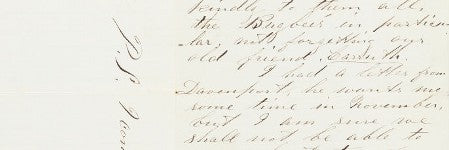 kindly to them all,
the Bugbees in particu-
lar, not forgetting our
old friend Carruth.
I had a letter from
Davenport, he wants me
some time in November,
but I am sure we
shall not be able to
P.S.